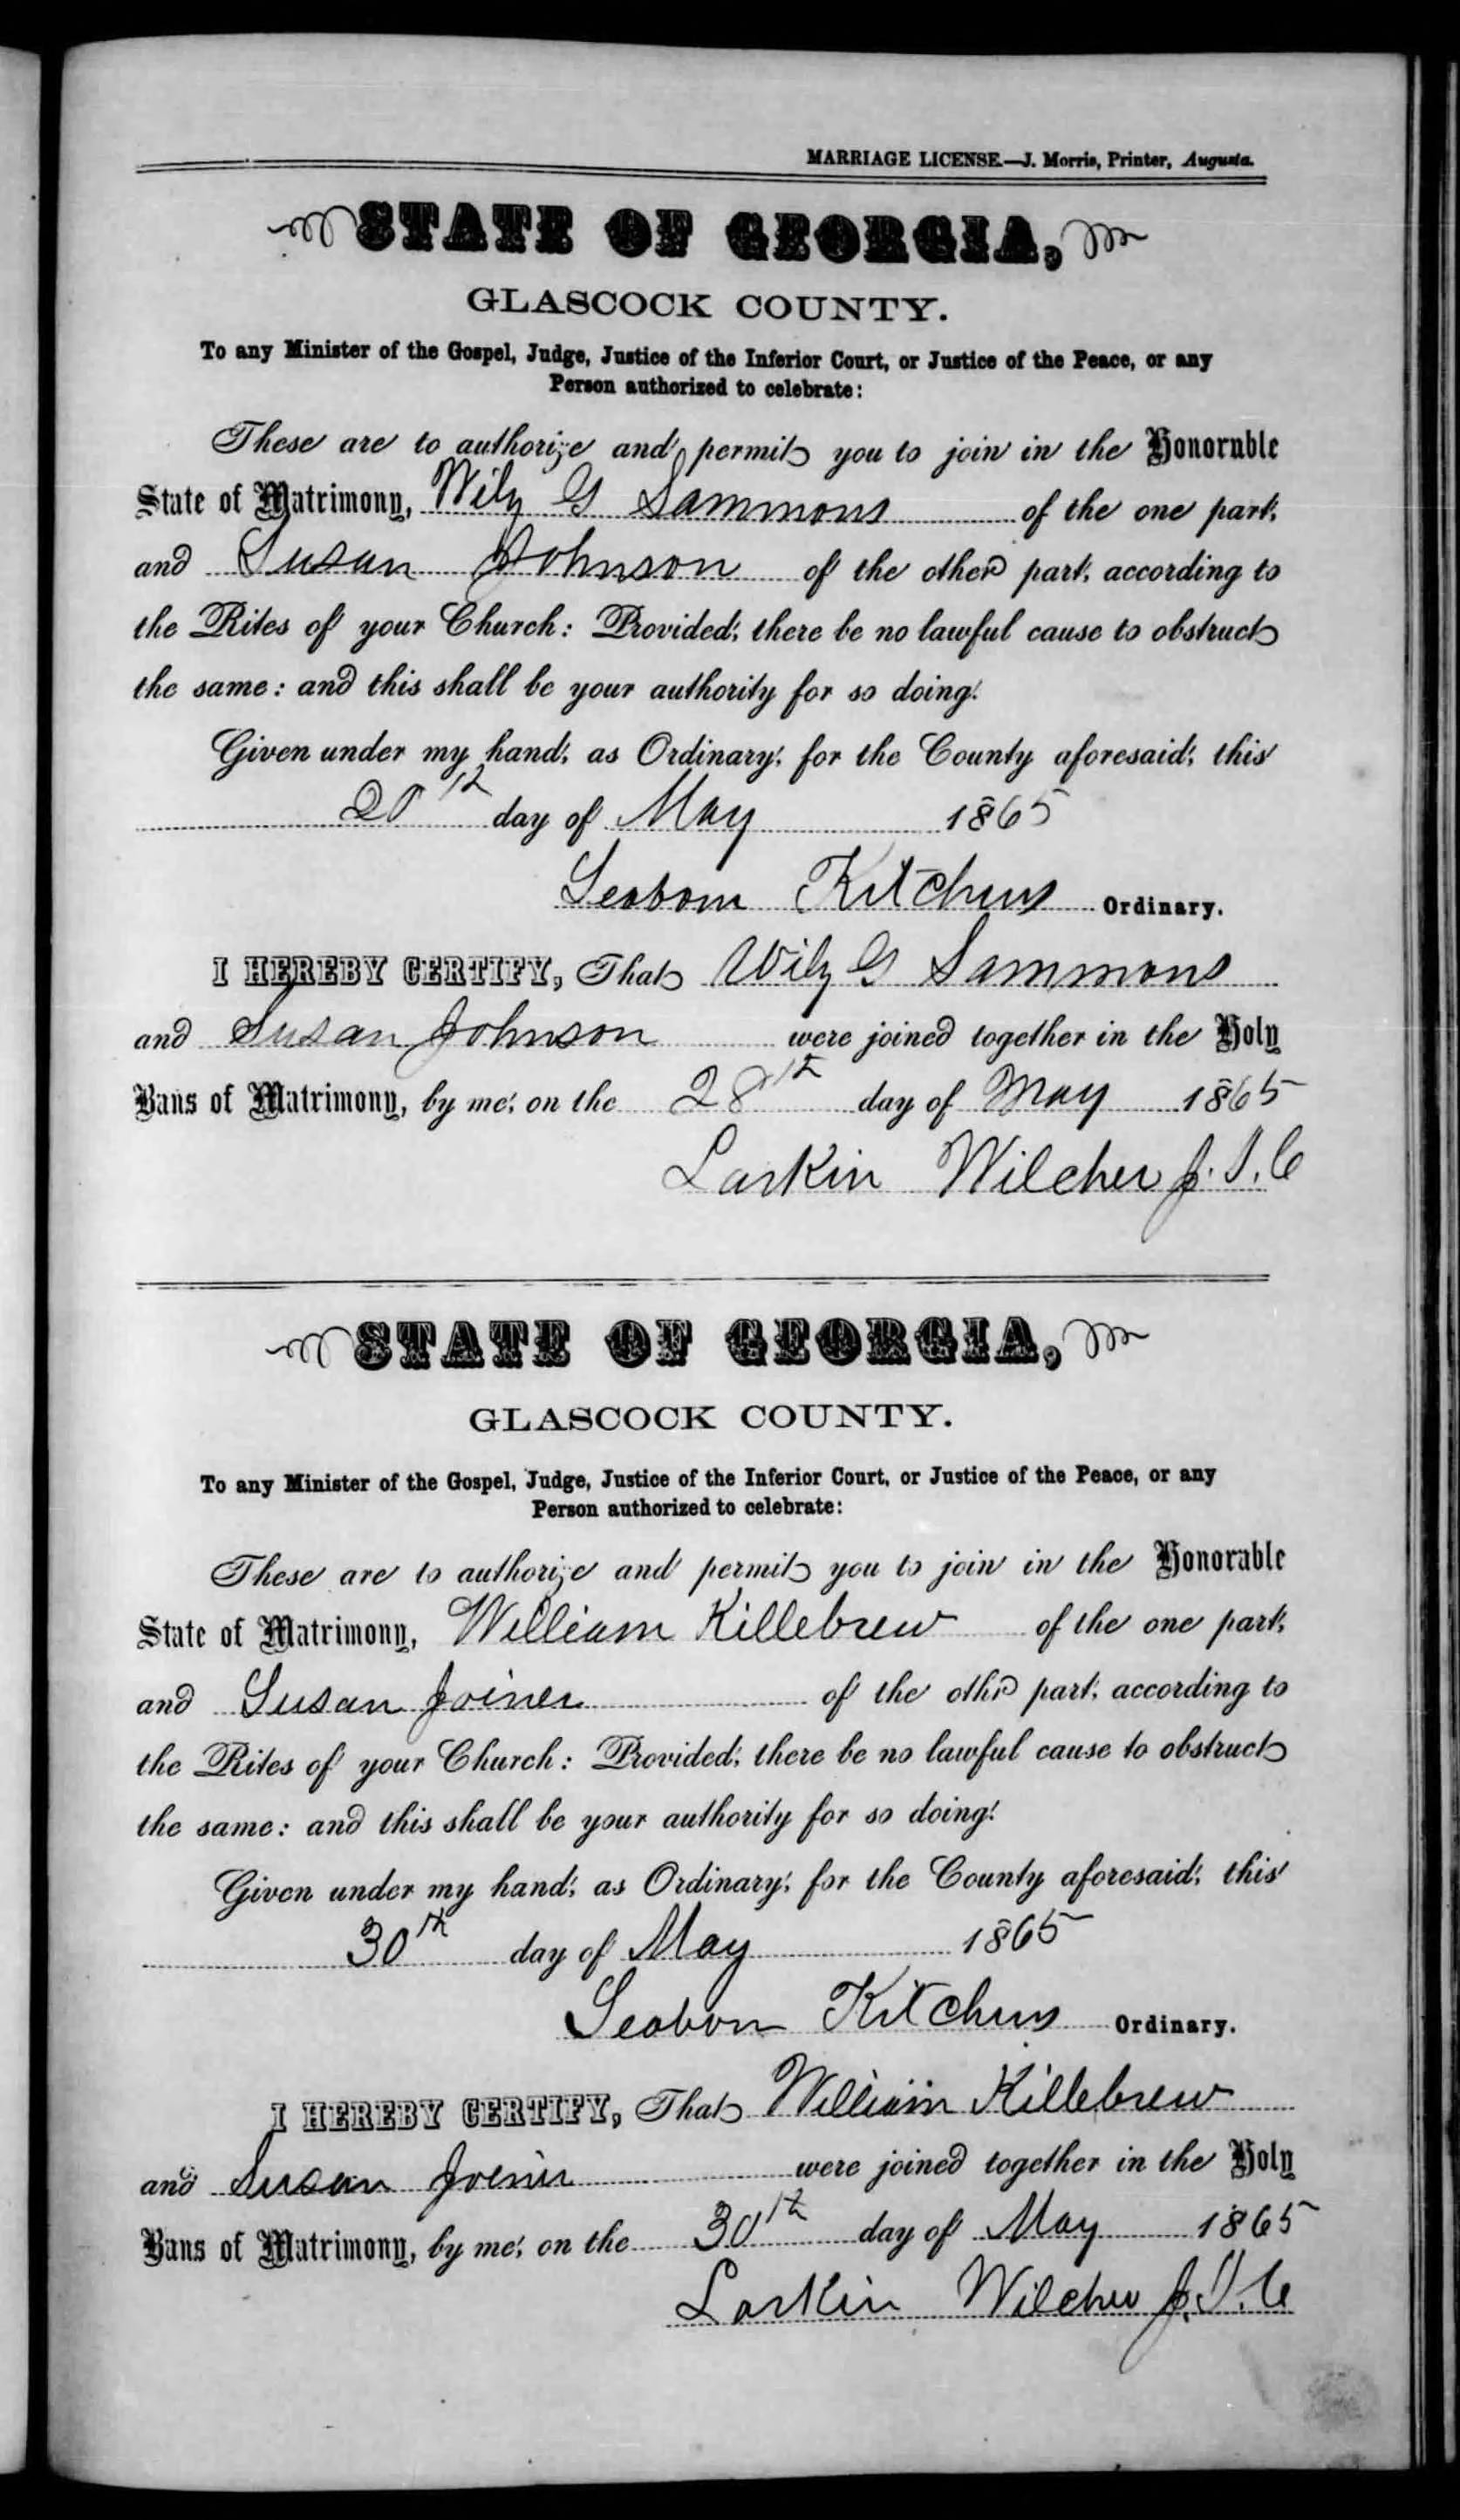 MARRIAGE LICENSE.—J. Morris, Printer, Augusta.
STATE OF GEORGIA,
GLASCOCK COUNTY.
To any Minister of the Gospel, Judge, Justice of the Inferior Court, or Justice of the Peace, or any
Person authorized to celebrate:
These are to authorize and permit you to join in the Honorable
State of Matrimony, Wily G Sammons of the one part,
and Susan Johnson of the other part, according to
the Rites of your Church: Provided, there be no lawful cause to obstruct
the same: and this shall be your authority for so doing.
Given under my hand, as Ordinary, for the County aforesaid, this
20th day of May 1865
Seaborn Kitchens Ordinary.
I HEREBY CERTIFY, That Wily G Sammons
and Susan Johnson were joined together in the Holy
Bans of Matrimony, by me, on the 28th day of May 1865
Larkin Wilcher J. I. C
STATE OF GEORGIA,
GLASCOCK COUNTY.
To any Minister of the Gospel, Judge, Justice of the Inferior Court, or Justice of the Peace, or any
Person authorized to celebrate:
These are to authorize and permit you to join in the Honorable
State of Matrimony, William Killebrew of the one part,
and Susan Joiner of the othr part, according to
the Rites of your Church: Provided, there be no lawful cause to obstruct
the same: and this shall be your authority for so doing.
Given under my hand, as Ordinary, for the County aforesaid, this
30th day of May 1865
Seaborn Kitchens Ordinary.
I HEREBY CERTIFY, That William Killebrew
and Susan Joiner were joined together in the Holy
Bans of Matrimony, by me, on the 30th day of May 1865
Larkin Wilcher J. I. C